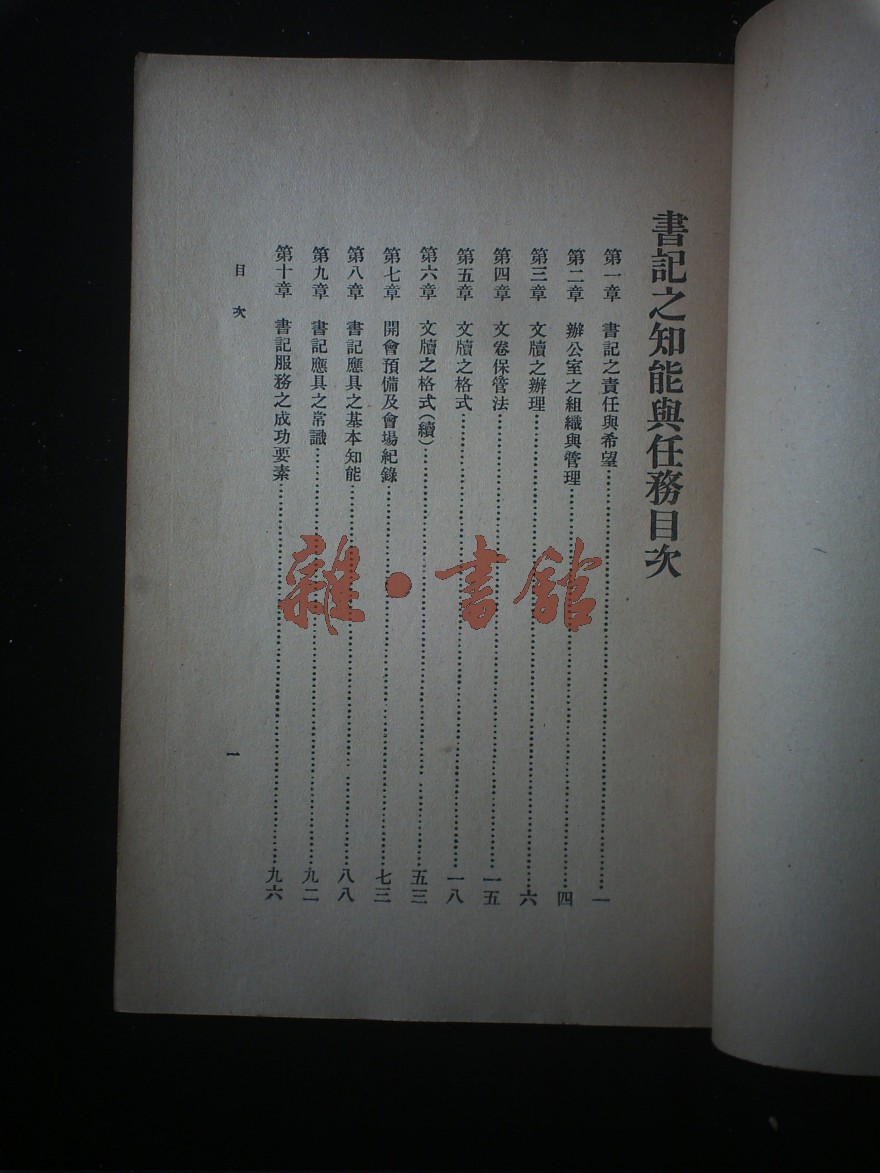 書記之知能與任務目次
第一章　書記之責任與希望……一
第二章　辦公室之組織與管理……四
第三章　文牘之辦理……六
第四章　文卷保管法……一五
第五章　文牘之格式……一八
第六章　文牘之格式(續)……五三
第七章　開會預備及會場紀錄……七三
第八章　書記應具之基本知能……八八
第九章　書記應具之常識……九二
第十章　書記服務之成功要素……九六
目次
一
雜·書館